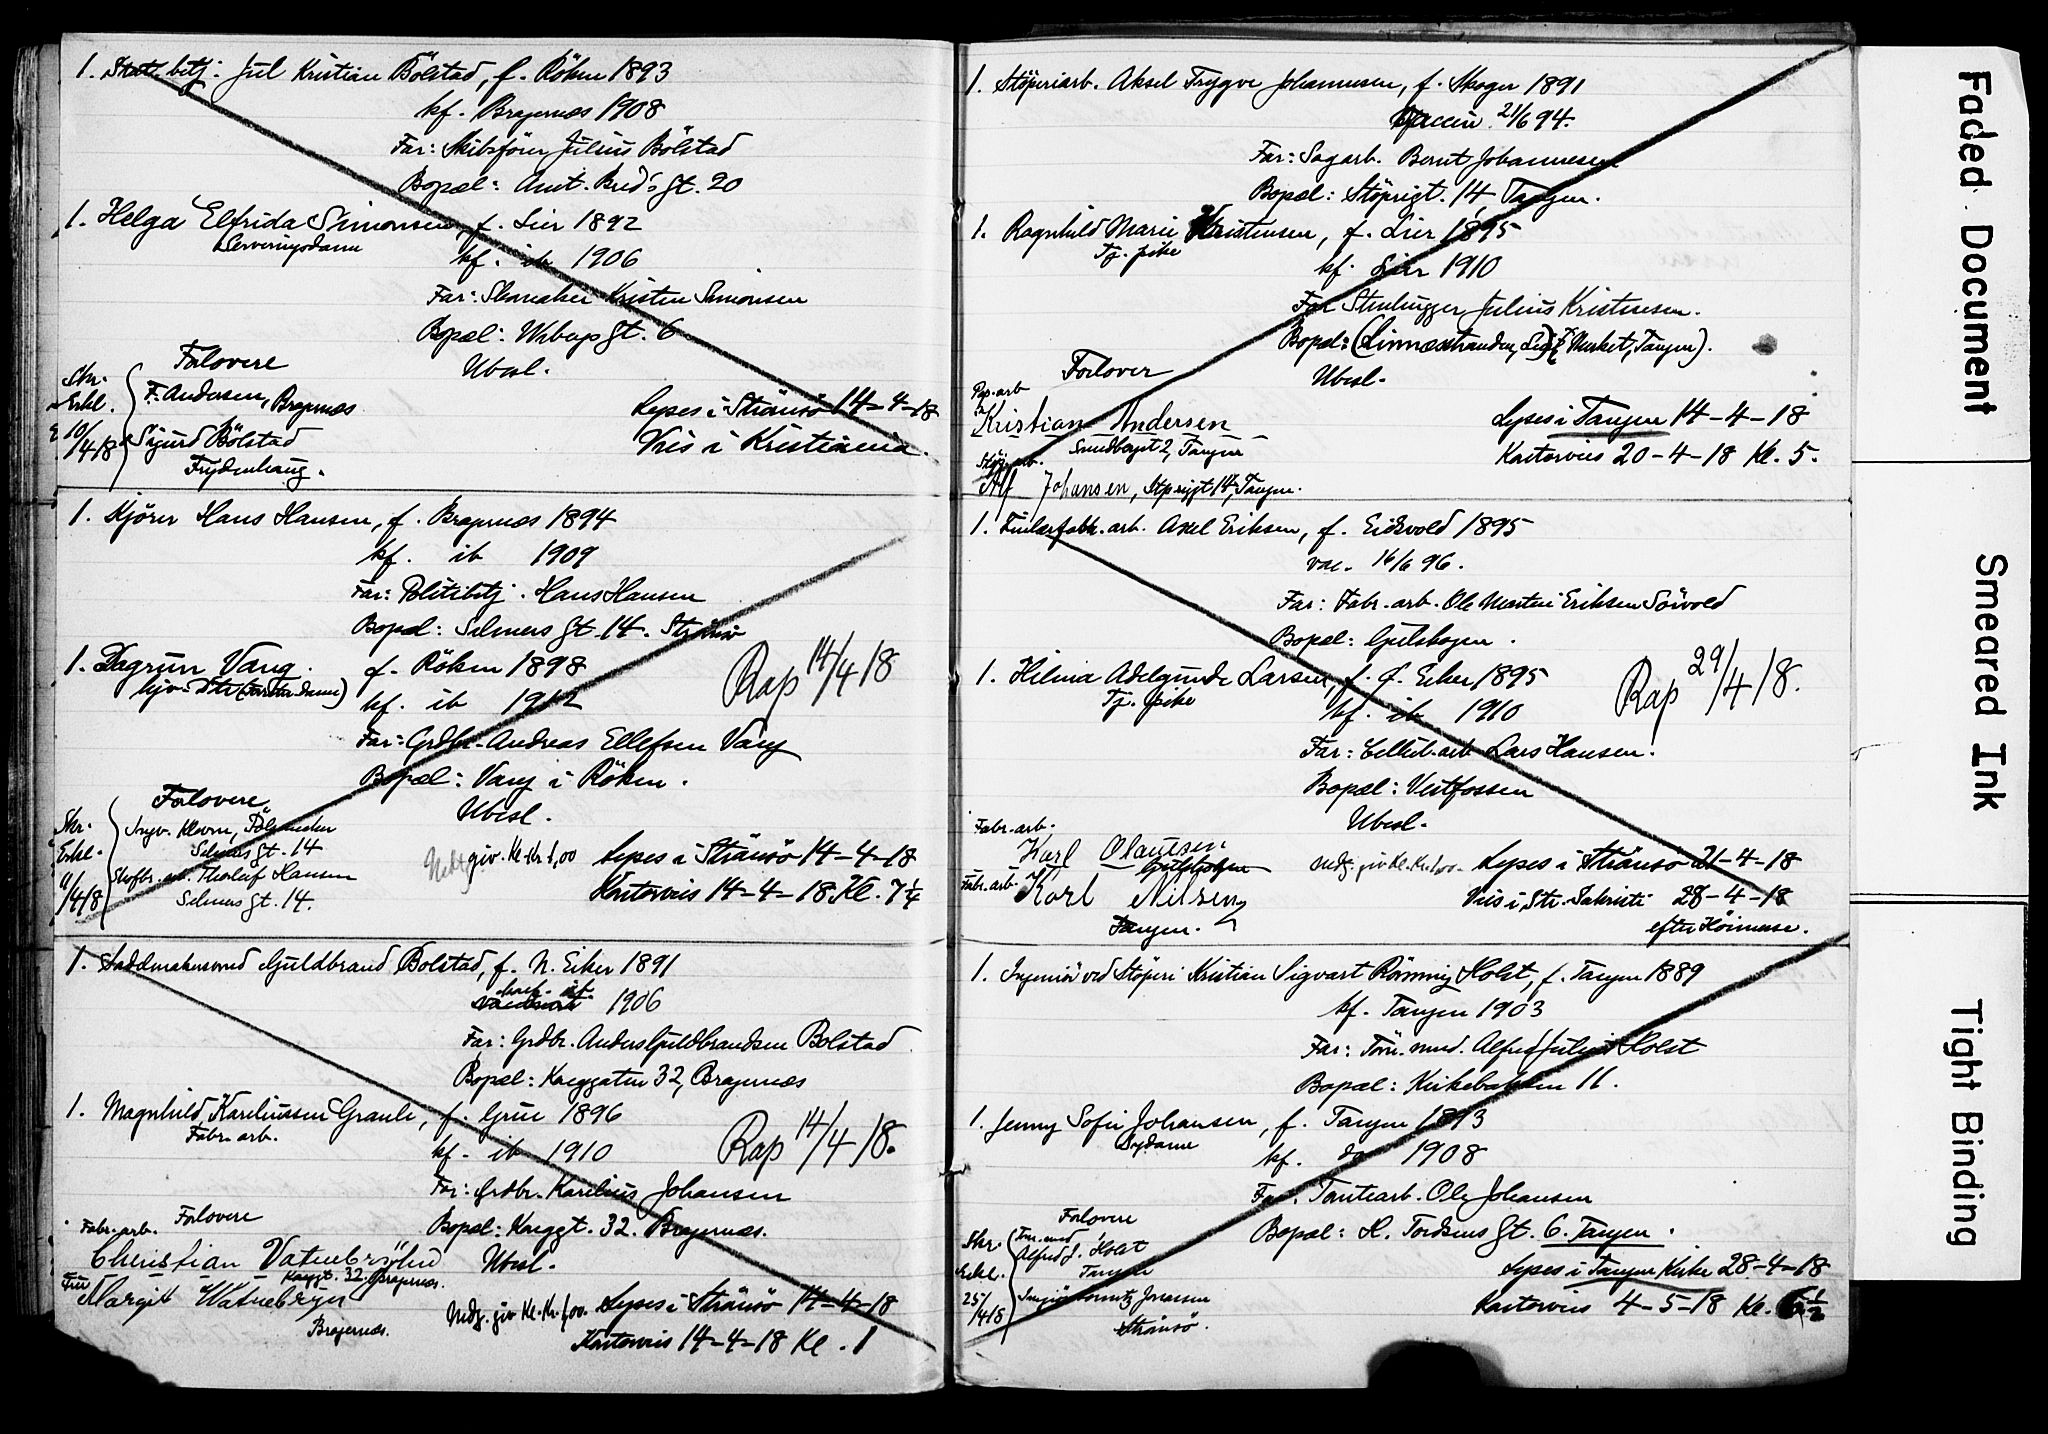 1. Stat. betj. Jul Kristian Bölstad, f. Röken 1893
kf. Bragernæs 1908
Far: Skibsfører Julius Bölstad
Bopæl: Amt. Bred's Gt. 20
1. Helga Elfrida Simonsen, f. Lier 1892
Serveringsdame
kf. ib 1906
Far: Skomaker Kristen Simonsen
Bopæl: Gt. 6
Ubesl.
Forlovere
Skr.
Erkl.
10/4 18
F. Andersen, Bragernæs
Sigurd Bölstad
Frydenhaug.
Lyses i Strömsö 14-4-18
Vies i Kristiania.
1. Kjörer Hans Hansen, f. Bragernæs 1894
kf. ib 1909
Far: Politibetj. Hans Hansen
Bopæl: Selmers Gt. 14. Strömsö
1. Dagrun Vang. f. Röken 1898
kf. ib 1912
Rap 14/4 18
Far: Grdbr. Andreas Ellefsen Vang
Bopæl: Vang i Röken.
Ubesl.
Forlovere
Skr.
Erkl.
11/4 18
Ingv. Klevm,
Selmers Gt. 14
Skofbr. arb. Thorleif Hansen
Selmers Gt. 14.
giv. Kl. Kr. 1,00 Lyses i Strömsö 14-4-18
Kontorvies 14-4-18 Kl. 7¼
1. Saddmakersvend Guldbrand Bolstad, f. N. Eiker 1891
1906
Far: Grdbr. Anders Guldbrandsen Bolstad
Bopæl: Kneggaten 32, Bragernæs
1. Magnhild Kareliussen Graule, f. Grue 1896
Fabr. arb.
kf. ib 1910
Rap 14/4 18.
Far: Grdbr. Karelius Johansen
Bopæl: Knoggt. 32. Bragernæs.
Ubesl.
Forlovere
Fabr. arb.
Christian Vatnebryhn
Knoggt. 32, Bragernæs.
Fru Margit Watnebryn
Bragernæs.
Nedg. giv Kl. Kr. 1,00. Lyses i Strömsö 14-4-18
Kontorvies 14-4-18 Kl. 1
1. Stöperiarb. Aksel Trygve Johannesen, f. Skoger 1891
Vaccin. 21/6 94.
Far: Sagarb. Bernt Johannesen
Bopæl: Stöperigt. 14, Tangen.
1. Ragnhild Marie Kristensen, f. Lier 1895
Tj. pike
kf. Lier 1910
Far Stenhugger Julius Kristensen.
Bopæl: (Linnæsstranden, Lier) Merket, Tangen).
Ubesl.
Forlover
Pap. arb
Kristian Andersen
Sundbergt 2, Tangen
Stöp. arb.
Alf Johansen, Stperigt 14, Tangen.
Lyses i Tangen 14-4-18
Kontorvies 20-4-18 Kl. 5.
1. Finlærfabr. arb. Axel Eriksen, f. Eidsvold 1895
vac. 16/6 96.
Far: Fabr. arb. Ole Martin Eriksen Sörvold
Bopæl: Gulskogen.
1. Hilma Adelgunde Larsen, f. Ö. Eeker 1895
Tj. pike
kf. ib 1910
Rap 29/4 18.
Far: Cellul. arb. Lars Hansen.
Bopæl: Vestfossen
Ubesl.
Fabr. arb.
Karl Olausen
Gulskogen
Fabr. arb. Karl Nilsen
Tangen.
Nedg. giv Kl. Kr. 1,00. Lyses i Strömsö 21-4-18
Vies i Str. Sakristi 28-4-18
efter Höimesse.
1. Ingeniör ved Stöperi Kristian Sigvart Rönning Holst, f. Tangen 1889
kf. Tangen 1903
Far: Töm. mnd. Alfred Julius Holst
Bopæl: Kirkebakken 11.
1. Jenny Sofie Johansen, f. Tangen 1893
Sydame
kf. do 1908
Far: Tomtearb. Ole Johansen
Bopæl: H. Tordsens Gt. 6. Tangen.
Forlovere
Skr.
Erkl.
25/4 18
Töm. mnd
Alfred J. Holst
Tangen
Ingeniör Jonassen
Strömsö.
Lyses i Tangen Kirke 28-4-18
Kontorvies 4-5-18 Kl. 6½
Faded Document
Smeared Ink
Tight Binding